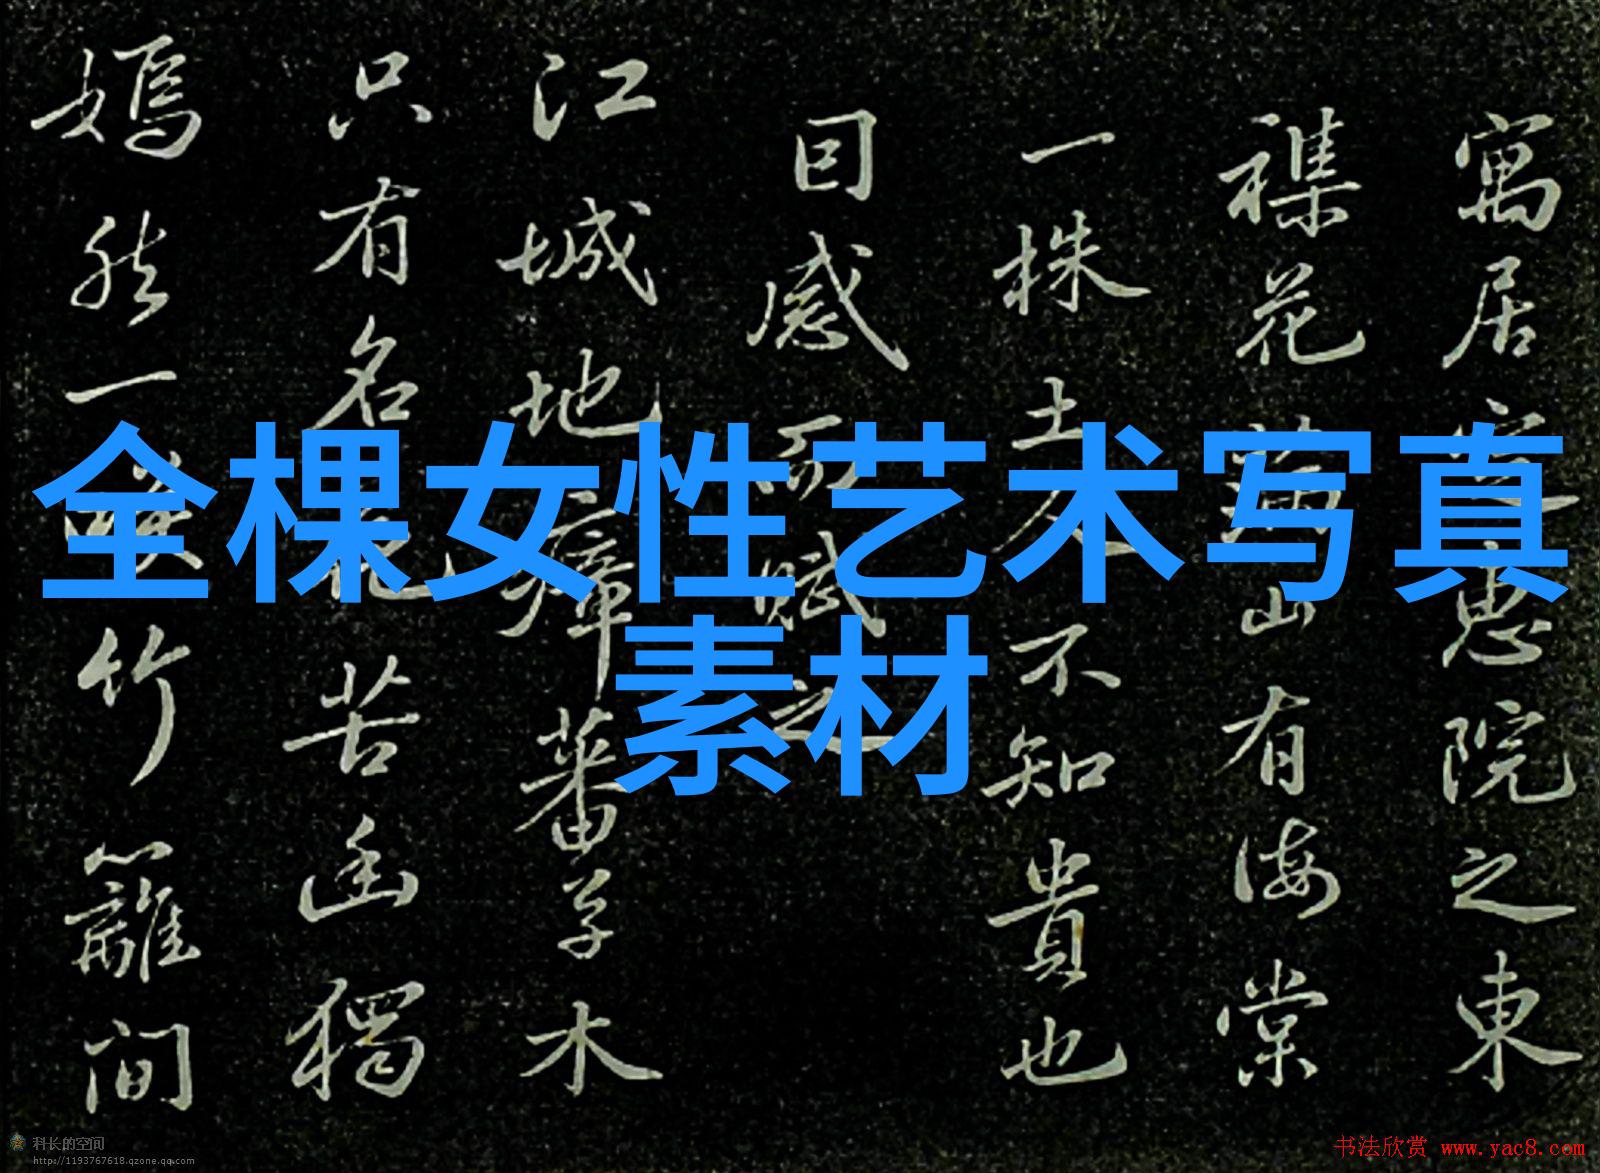 全棵女性艺术写真
素材
寓居定惠院之東
襍花滿山有海棠
一株土人不知貴也
囙感而賦之
江城地瘴蕃草木
只有名花苦幽獨
嫣然一咲竹籬間
科长的空间
http://1193767618.qzone.qq.com
书法欣赏 www.yac8.com